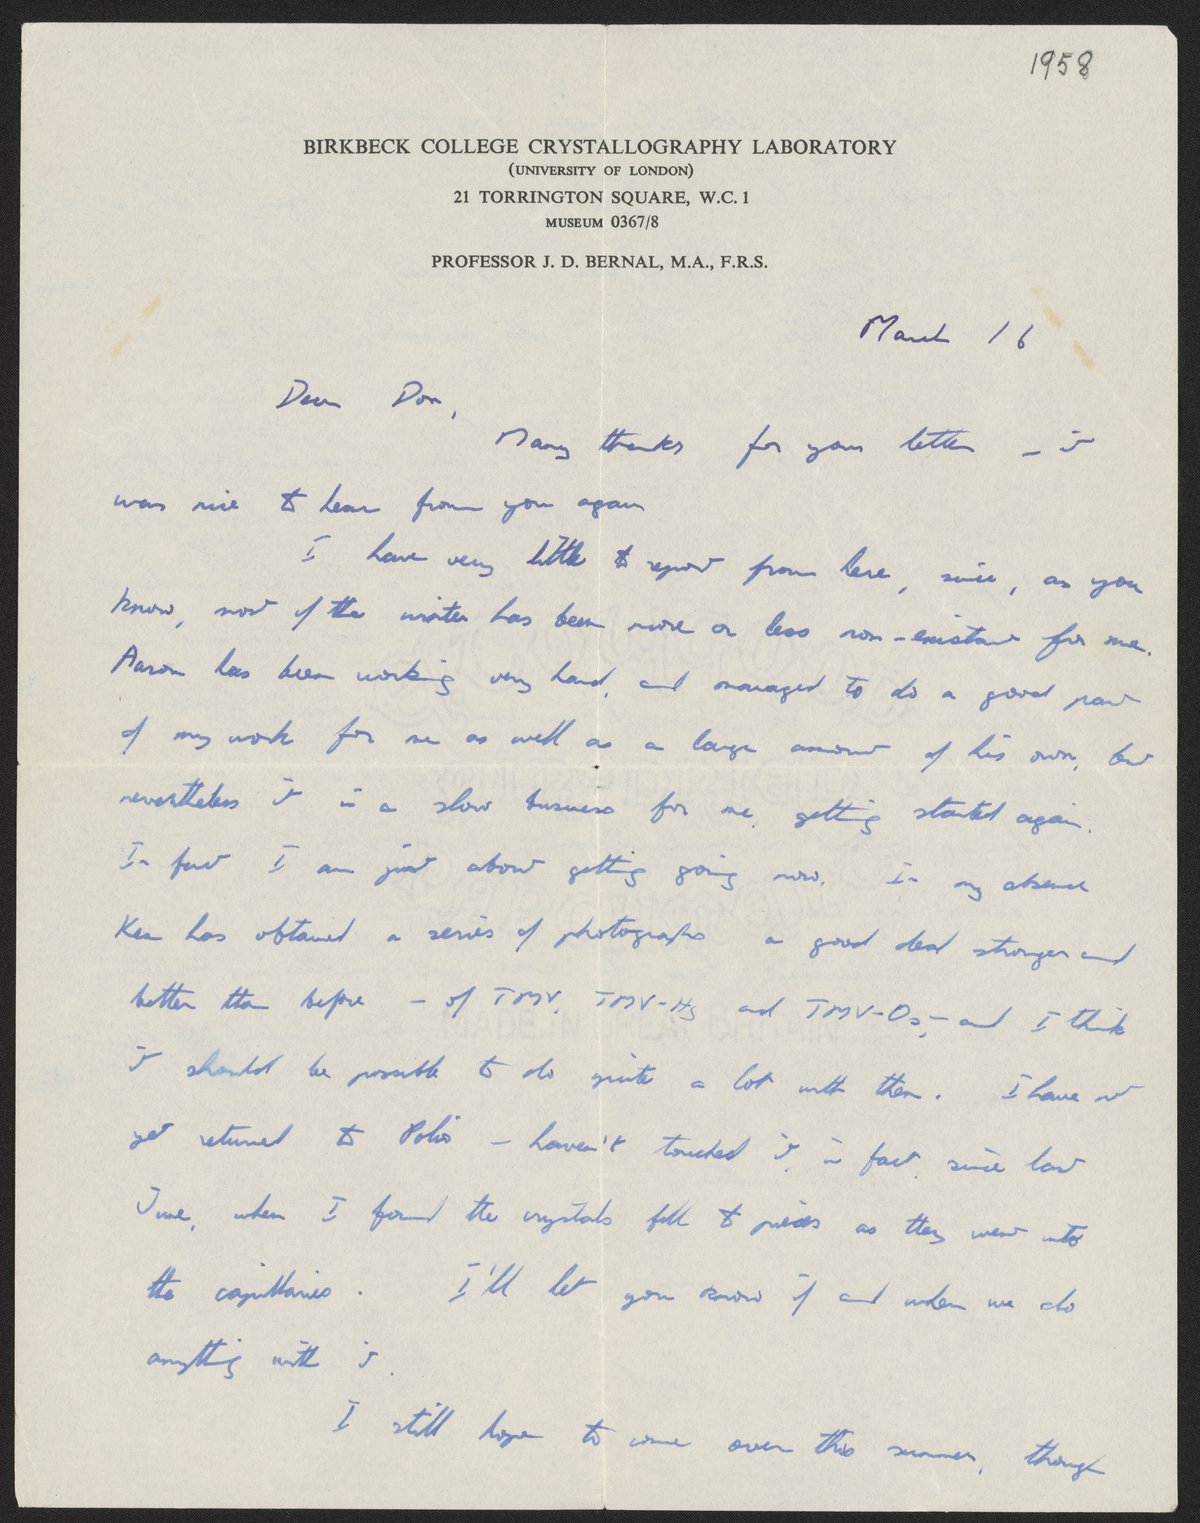 1958
BIRKBECK COLLEGE CRYSTALLOGRAPHY LABORATORY
(UNIVERSITY OF LONDON)
21 TORRINGTON SQUARE, W.C. 1
MUSEUM 0367/8
PROFESSOR J. D. BERNAL, M.A., F.R.S.
March 16
Dear Don,
Many thanks for your letter – it
was nice to hear from you again
I have very little to report from here, since, as you
know, most of the winter has been more or less non-existant for me.
Aaron has been working very hard, and managed to do a good part
of my work for me as well as a large amount of his own, but
nevertheless it is a slow business for me, getting started again.
In fact I am just about getting going now. In my absence
Ken has obtained a series of photographs a good deal stronger and
better than before – of TMV, TMV-Hg and TMV-Os, – and I think
it should be possible to do quite a lot with them. I have not
yet returned to Polio – haven't touched it, in fact, since last
June, when I found the crystals fell to pieces as they went into
the capillaries. I'll let you know if and when we do
anything with it.
I still hope to come over this summer, though